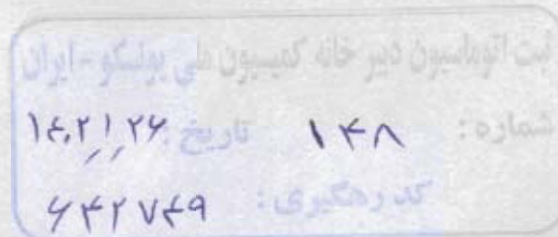 ثبت اتوماسیون دبیر خانه کمیسیون ملی یونسکو - ایران
شماره : ۱۴۸ تاریخ : ۱۴۰۲/۱/۲۶
کد رهگیری : ۶۴۲۷۴۹